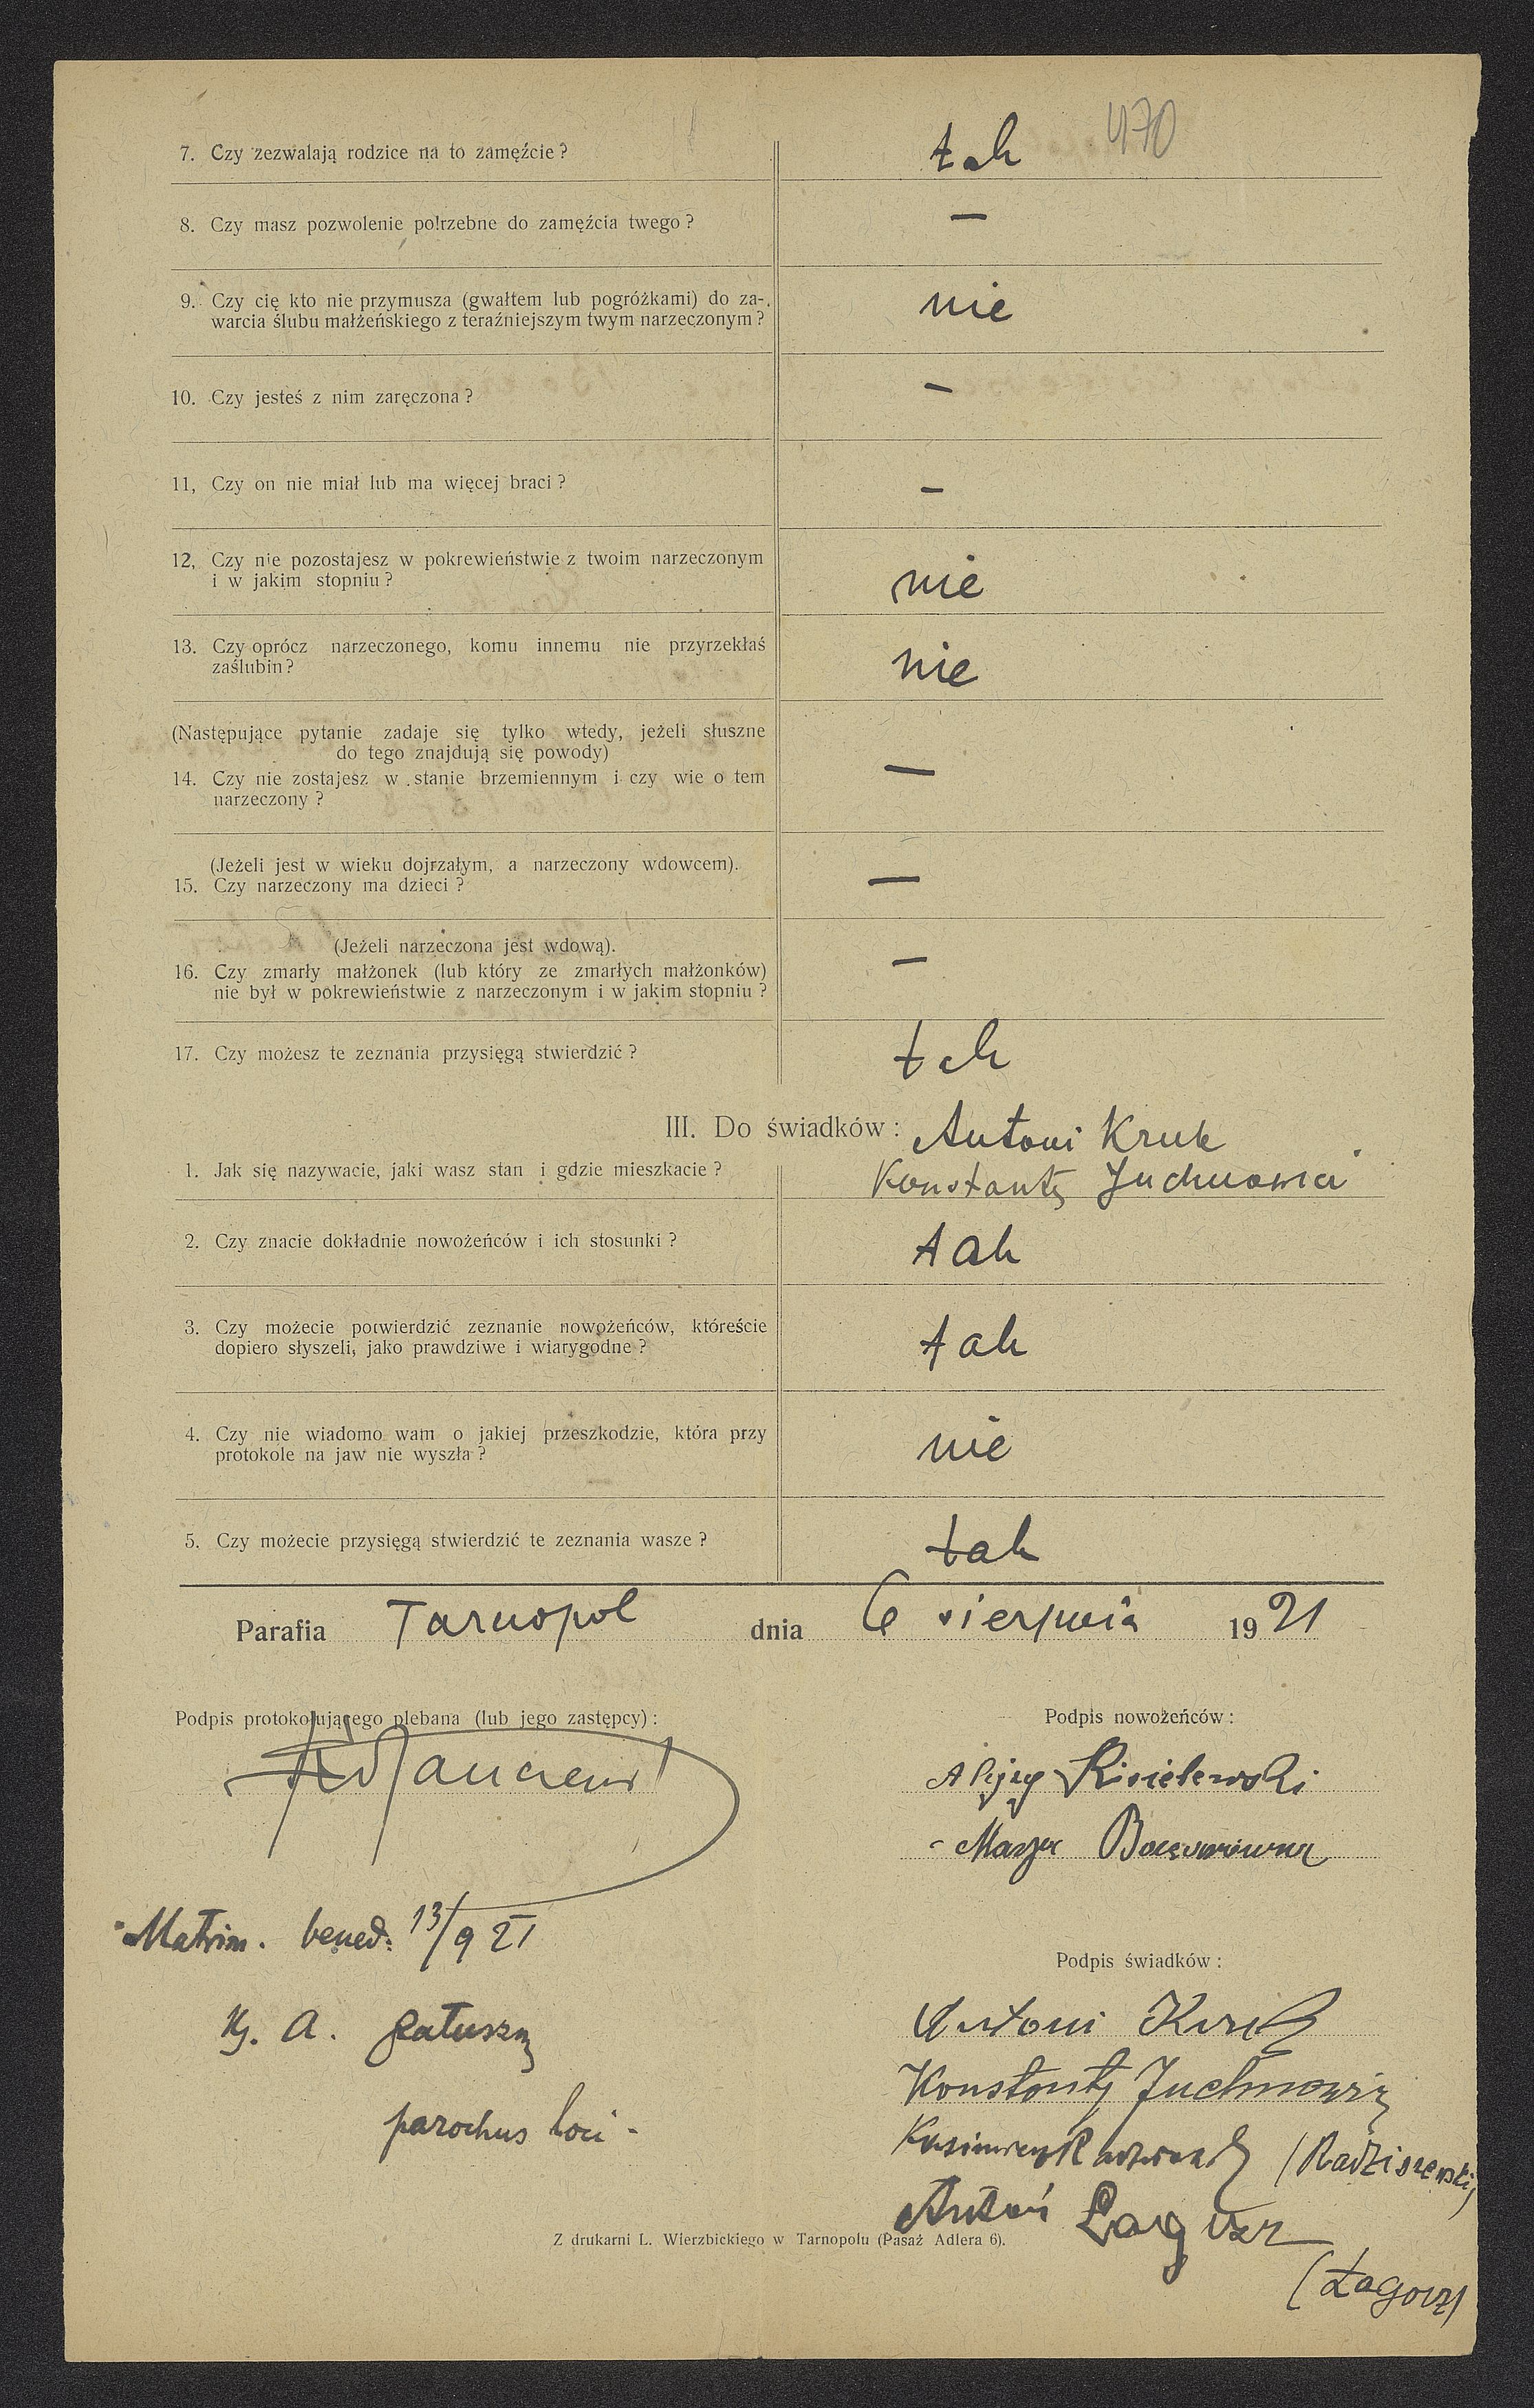 470
7. Czy zezwalają rodzice na to zamęźcie ? tak
8. Czy masz pozwolenie potrzebne do zamęźcia twego ? —
9. Czy cię kto nie przymusza (gwałtem lub pogróżkami) do za-
warcia ślubu małżeńskiego z teraźniejszym twym narzeczonym ? nie
10. Czy jesteś z nim zaręczona ? —
11, Czy on nie miał lub ma więcej braci ? —
12, Czy nie pozostajesz w pokrewieństwie z twoim narzeczonym
i w jakim stopniu ? nie
13. Czy oprócz narzeczonego, komu innemu nie przyrzekłaś
zaślubin ? nie
(Następujące pytanie zadaje się tylko wtedy, jeżeli słuszne
do tego znajdują się powody)
14. Czy nie zostajesz w stanie brzemiennym i czy wie o tem
narzeczony ? —
(Jeżeli jest w wieku dojrzałym, a narzeczony wdowcem).
15. Czy narzeczony ma dzieci ? —
(Jeżeli narzeczona jest wdową).
16. Czy zmarły małżonek (lub który ze zmarłych małżonków)
nie był w pokrewieństwie z narzeczonym i w jakim stopniu ? —
17. Czy możesz te zeznania przysięgą stwierdzić ? tak
III. Do świadków : Antoni Kruk
1. Jak się nazywacie, jaki wasz stan i gdzie mieszkacie ? Konstanty
2. Czy znacie dokładnie nowożeńców i ich stosunki ? tak
3. Czy możecie potwierdzić zeznanie nowożeńców, któreście
dopiero słyszeli, jako prawdziwe i wiarygodne ? tak
4. Czy nie wiadomo wam o jakiej przeszkodzie, która przy
protokole na jaw nie wyszła ? nie
5. Czy możecie przysięgą stwierdzić te zeznania wasze ? tak
Parafia Tarnopol dnia 6 sierpnia 1921
Podpis protokołującego plebana (lub jego zastępcy) :
Podpis nowożeńców :
Kisielewski
Marya
Matrim. bened. 13/9 21
Podpis świadków :
A.
Antoni Kruk
Konstanty
parochus loci
(Radziszewski)
Antoni
Z drukarni L. Wierzbickiego w Tarnopolu (Pasaż Adlera 6).
(Łagorz)